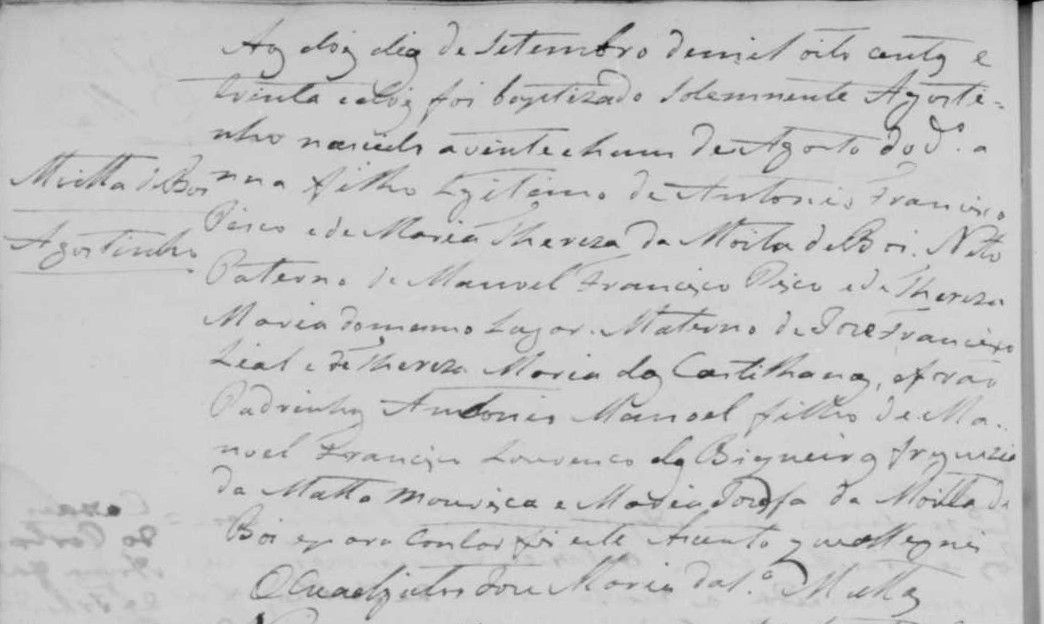 Aos dois dias de Setembro de mil oito centos e
trinta e dois foi baptizado solemnemente Agosti-
nho nascido a vinte e hum de Agosto do d.º a
Moitta de Boi
nno filho legitimo de Antonio Francisco
Agostinho
Pisco e de Maria Thereza da Moita de Boi. Neto
Paterno de Manoel Francisco Pisco e de Thereza
Maria do mesmo Lugar. Materno de Joze Francisco
Leal e de Thereza Maria das Castilhanas, e forão
Padrinhos Antonio Manoel filho de Ma-
noel Francisco Lourenco da freguezia
da Matta Mourisca e Maria Josefa da Moitta de
Boi e para constar fiz este Asento que assignei
O Joze Maria da S.ª Motta